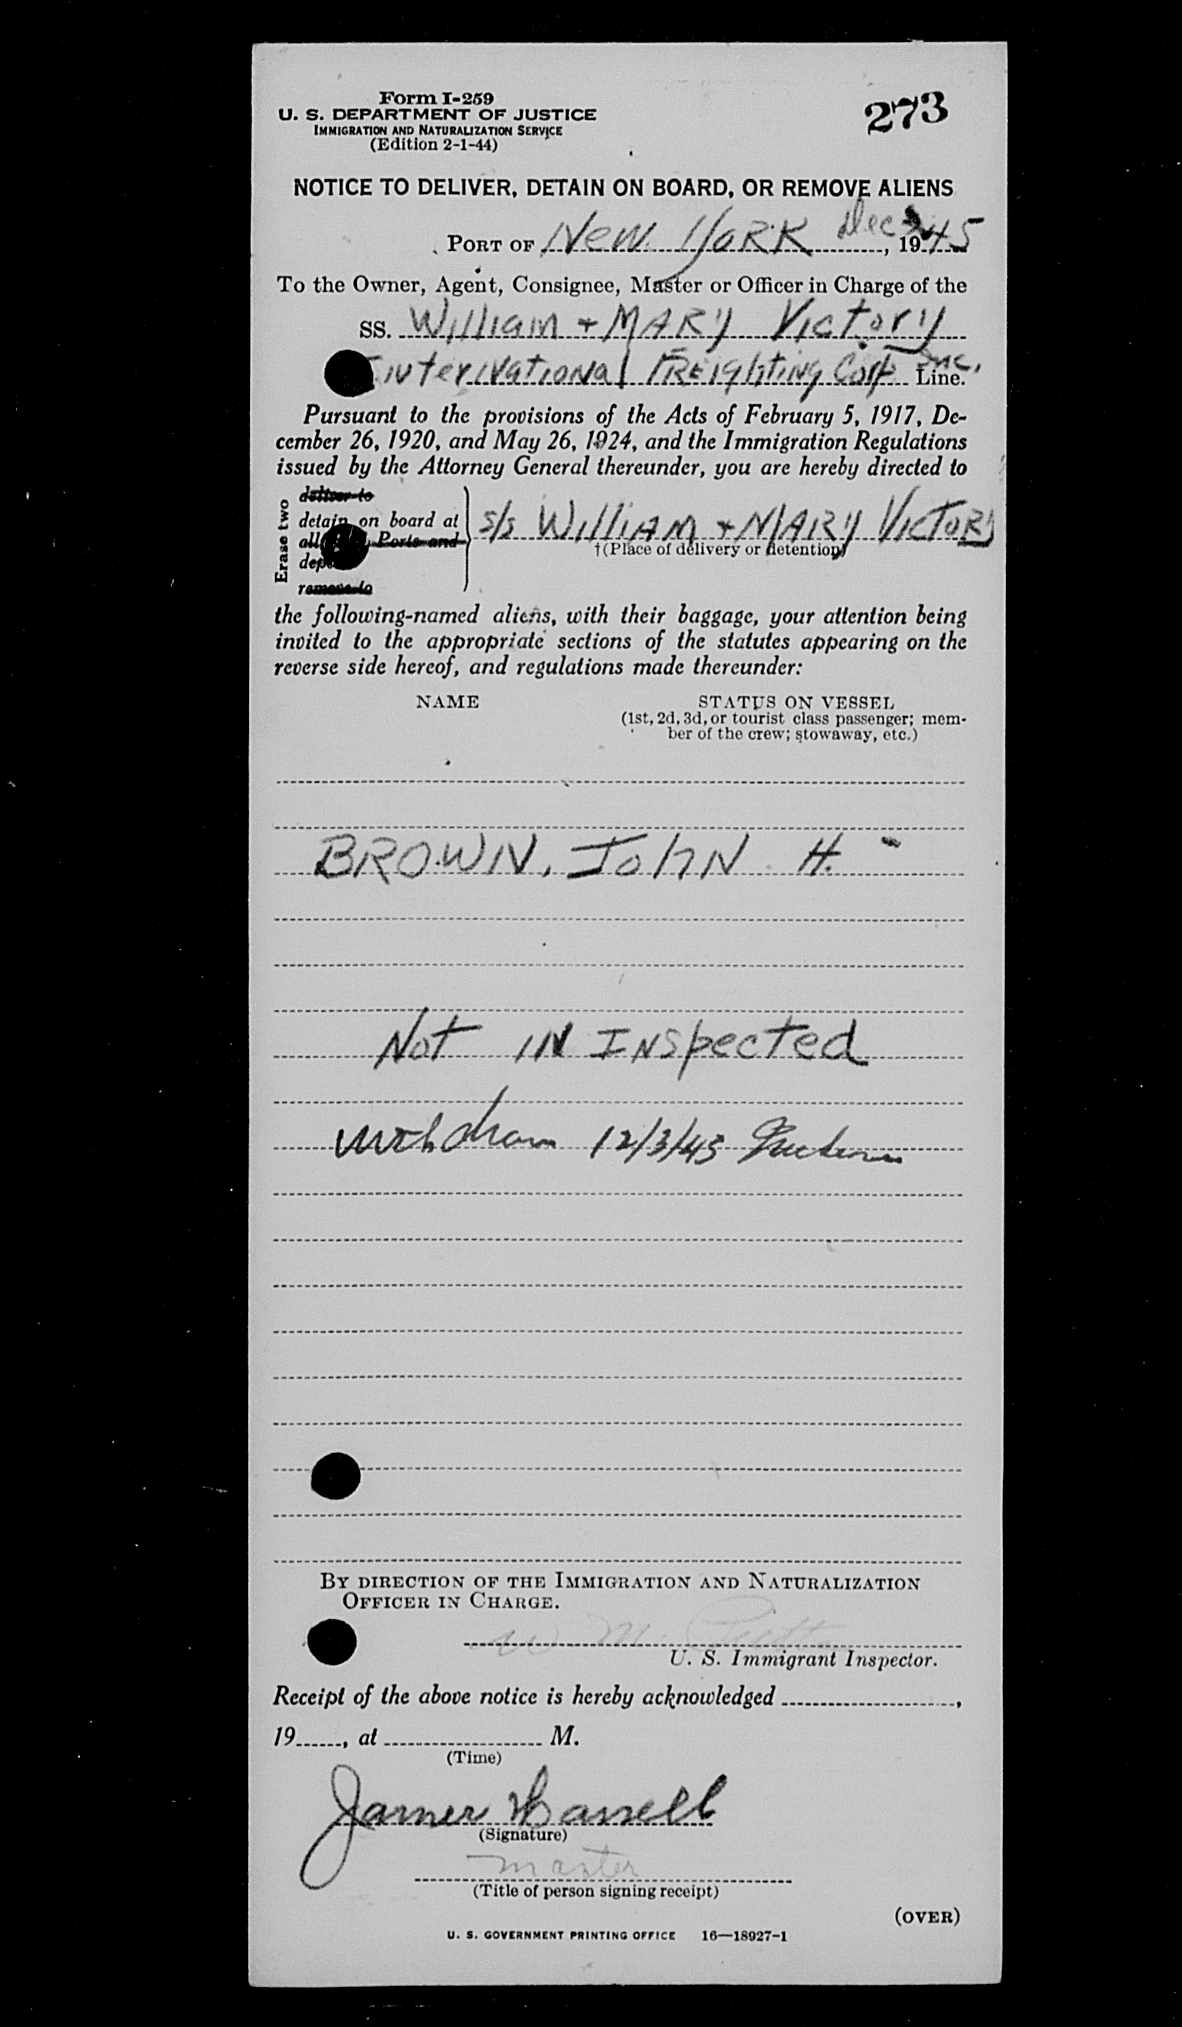 Form I-259
U. S. DEPARTMENT OF JUSTICE
IMMIGRATION AND NATURALIZATION SERVICE
(Edition 2-1-44)
273
NOTICE TO DELIVER, DETAIN ON BOARD, OR REMOVE ALIENS
PORT OF New YORK Dec 3, 1945
To the Owner, Agent, Consignee, Master or Officer in Charge of the
SS. William + MARY Victory
International FREighting Corp Inc. Line.
Pursuant to the provisions of the Acts of February 5, 1917, De-
cember 26, 1920, and May 26, 1924, and the Immigration Regulations
issued by the Attorney General thereunder, you are hereby directed to
Erase two
deliver to
detain on board at
all Ports and
remove to
s/s William + MARY VICTORY
†(Place of delivery or detention)
the following-named aliens, with their baggage, your attention being
invited to the appropriate sections of the statutes appearing on the
reverse side hereof, and regulations made thereunder:
NAME STATUS ON VESSEL
(1st, 2d, 3d, or tourist class passenger; mem-
ber of the crew; stowaway, etc.)
BROWN, JOHN H.
Not IN INspected
withdrawn 12/3/45
BY DIRECTION OF THE IMMIGRATION AND NATURALIZATION
OFFICER IN CHARGE.
W M.
U. S. Immigrant Inspector.
Receipt of the above notice is hereby acknowledged ,
19 , at M.
(Time)
James
(Signature)
master
(Title of person signing receipt)
(OVER)
U. S. GOVERNMENT PRINTING OFFICE 16—18927-1